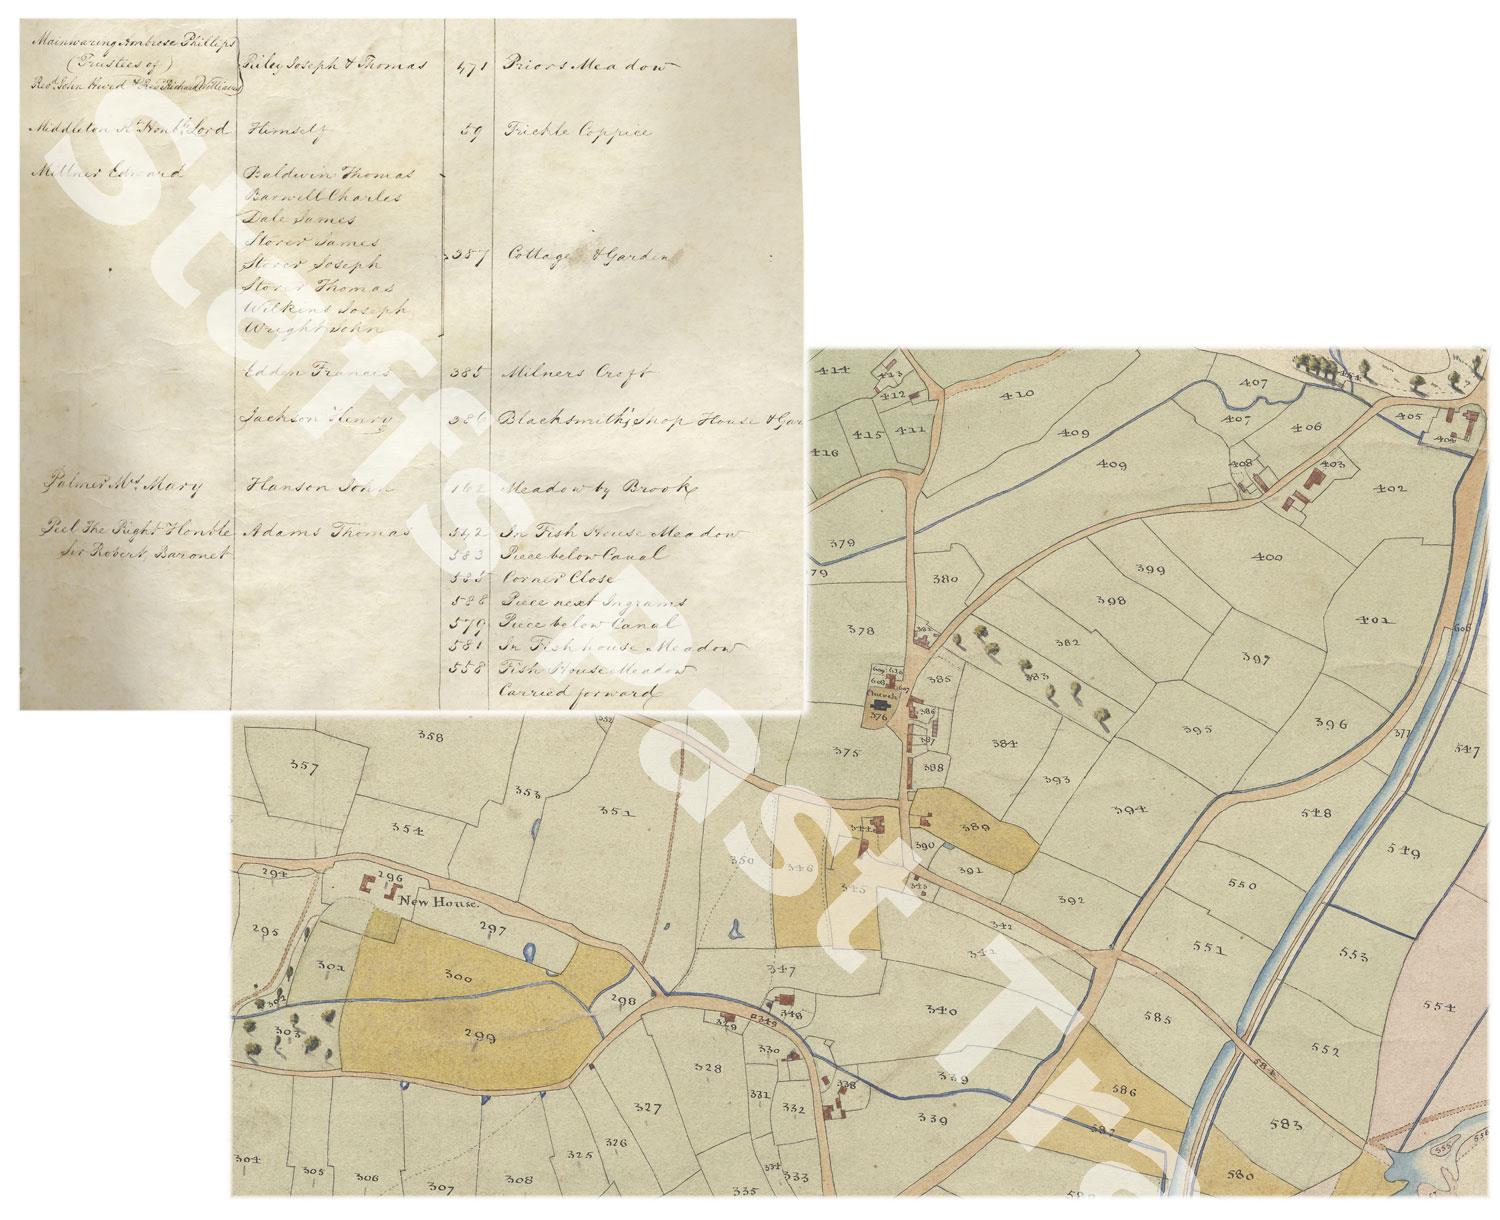 Mainwaring Ambrose Phillips
(Trustees of)
Revd. John Hurd & Rev Richard Williams
Riley Joseph & Thomas 471 Priors Meadow
Middleton Rt. Honble. Lord Himself 59 Frickle Coppice
Millner Edward Baldwin Thomas
Barwell Charles
Dale James
Storer James
Storer Joseph 387 Cottage & Garden
Storer Thomas
Wilkins Joseph
Wright John
Edden Francis 385 Milners Croft
Jackson Henry 386 Blacksmith's Shop House & Gar
Palmer Mrs. Mary Hanson John 162 Meadow by Brook
Peel The Right Honble Adams Thomas 542 In Fish House Meadow
Sir Robert Baronet 583 Piece below Canal
585 Corner Close
588 Piece next Ingrams
579 Piece below Canal
581 In Fish house Meadow
558 Fish House Meadow
Carried forward
Staffs Past Tra
414 413 412 410 407 405
415 411 409 407 406 404
416 409 408 403 402
379 400
79 380 399
398 401 606
378 382 397
385 383
Church
376 386 396 377
375 387 384 395 547
388 393 394 548
358
357 353 351
354 344 389 549
350 346 345 390 391
294 296 343 392 550
New House.
295 297 342 341 551 553
301 300 347 554
302 298 348 340 585
303 299 329 349 552
330 584
328 338 339 586
327 331 332 339 587 583
326 555 556
304 305 306 307 308 325 334 333 335 580